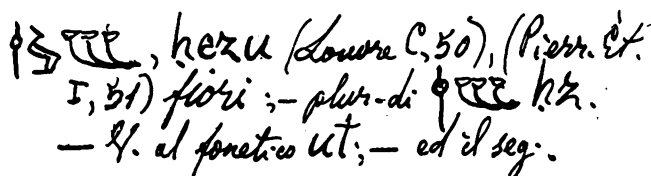 , hezu (Louvre C, 50), (Pierr. Ét.
I, 51) fiori ; — plur. di hz.
— V. al fonetico ut; — ed il seg.